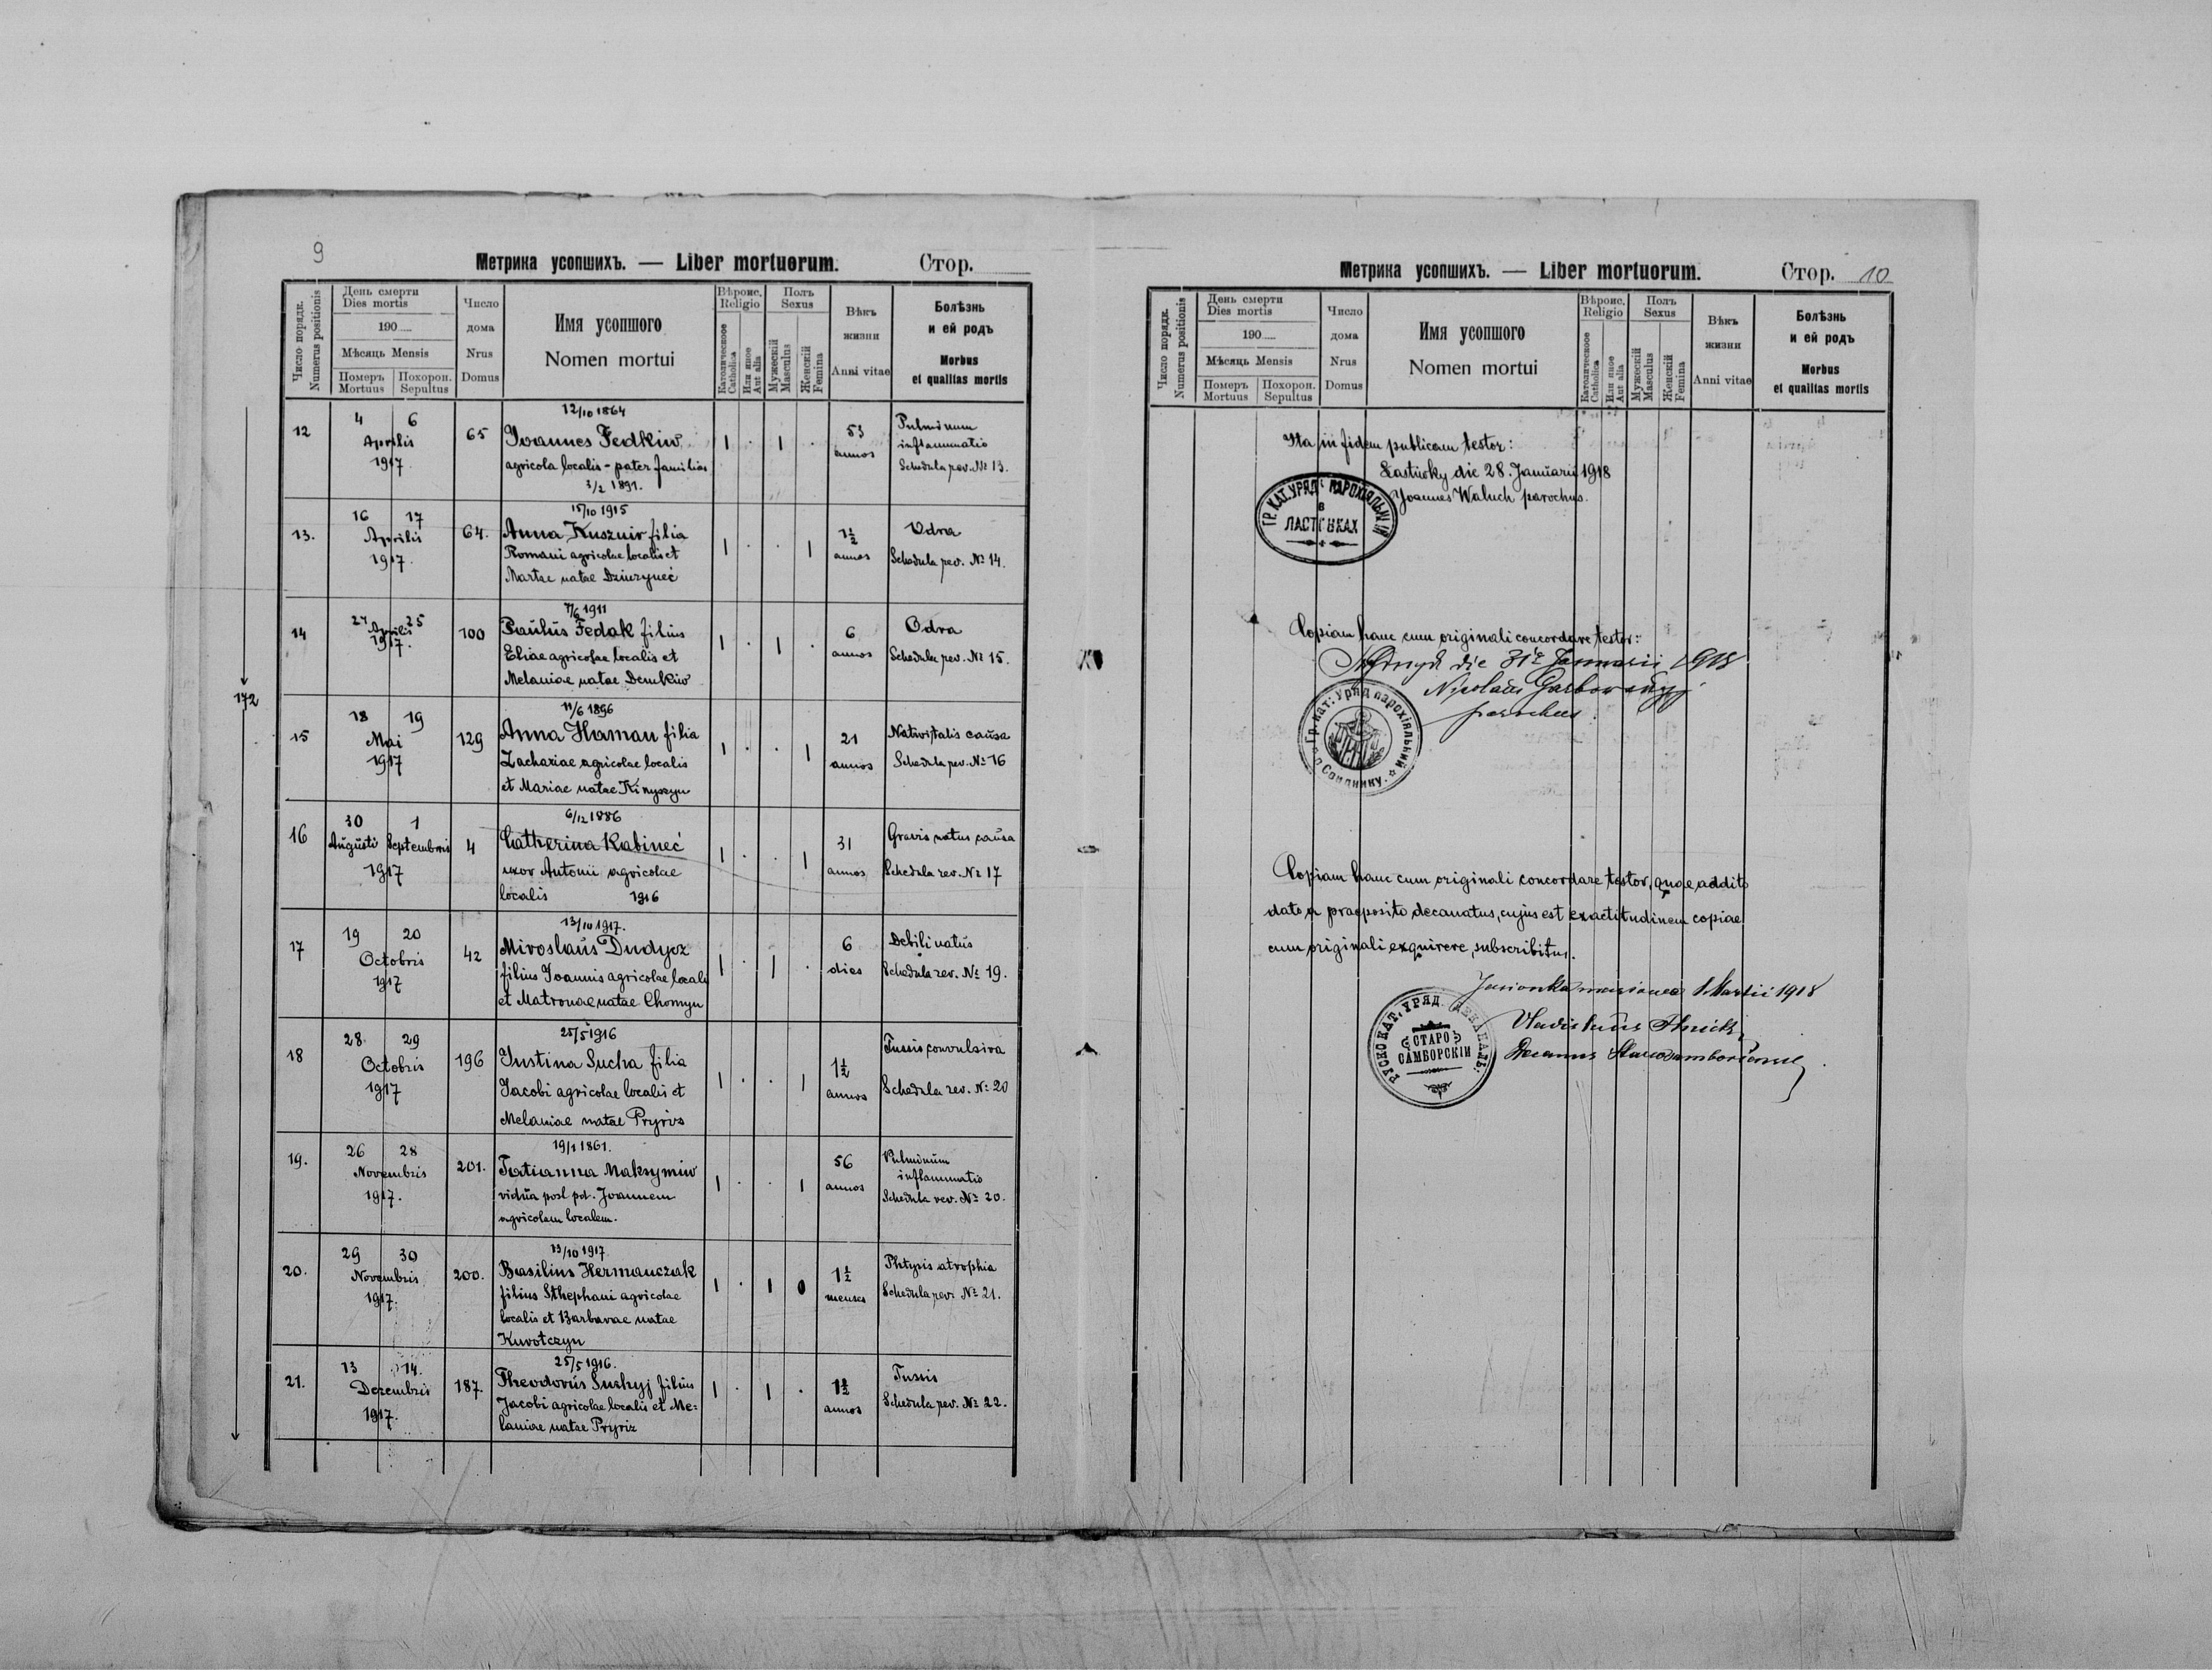 9
Метрика усопшихъ. — Liber mortuorum. Стор.
Число порядк. Numerus positionis
День смерти Dies mortis
190
Мѣсяць Mensis
Померъ Mortuus
Похорон. Sepultus
Число дома Nrus Domus
Имя усопшого
Nomen mortui
Вѣроис. Religio
Католическое Catholica
Или иное Aut alia
Полъ Sexus
Мужескій Masculus
Женскій Femina
Вѣкъ жизни Anni vitae
Болѣзнь и ей родъ
Morbus et qualitas mortis
172
12/10 1864
12 4 6 65 Joannes Fedkiw 53 Pulminum
Aprilis agricola localis - pater familias annos inflammatio
1917. 3/2 1891. Schedula rev. № 13.
15/10 1915
13. 16 17 64. Anna Kusznir filia 1½ Odra
Aprilis Romani agricolae localis et annos Schedula rev. № 14.
1917. Martae natae Dziurzyneć
7/6 1911
14 24 25 100 Paulus Fedak filius 6 Odra
Aprilis Eliae agricolae localis et annos Schedula rev. № 15.
1917. Melaniae natae Demkiw
11/6 1896
15 18 19 129 Anna Haman filia 21 Nativitatis causa
Mai Zachariae agricolae localis annos Schedula rev. № 16
1917 et Mariae natae Kinyszyn
6/12 1886
16 30 1 4 Catherina Kabineć 31 Gravis natus causa
Augusti Septembris uxor Antonii agricolae annos Schedula rev. № 17
1917 localis 1916
13/10 1917.
17 19 20 42 Miroslaus Dudycz 6 Debili natus
Octobris filius Joannis agricolae localis dies Schedula rev. № 19.
1917 et Matronae natae Chomyn
25/5 1916
18 28 29 196 Justina Sucha filia 1½ Tussis convulsiva
Octobris Jacobi agricolae localis et annos Schedula rev. № 20
1917 Melaniae natae
19/1 1861.
19. 26 28 201. Tatianna Maksymiw 56 Pulminum
Novembris vidua post pd. Joannem annos inflammatio
1917. agricolam localem. Schedula rev. № 20.
13/10 1917
20. 29 30 200. Basilius Hermanczak 1½ Phtysis atrophia
Novembris filius Sthephani agricolae menses Schedula rev. № 21.
1917. localis et Barbarae natae
Kurotczyn
25/5 1916.
21. 13 14. 187. Theodorus Suchyj filius 1½ Tussis
Dezembris Jacobi agricolae localis et Me- annos Schedula rev. № 22.
1917. laniae natae Pryriz
Метрика усопшихъ. — Liber mortuorum. Стор. 10
Число порядк. Numerus positionis
День смерти Dies mortis
190
Мѣсяць Mensis
Померъ Mortuus
Похорон. Sepultus
Число дома Nrus Domus
Имя усопшого
Nomen mortui
Вѣроис. Religio
Католическое Catholica
Или иное Aut alia
Полъ Sexus
Мужескій Masculus
Женскій Femina
Вѣкъ жизни Anni vitae
Болѣзнь и ей родъ
Morbus et qualitas mortis
Ita in fidem publicam testor:
Łastiwky die 28. Januarii 1918
Joannes Waluch parochus.
ГР. КАТ. УРЯД ПАРОХІЯЛЬНІЙ
В
ЛАСТІВКАХ
Copiam hanc cum originali concordare testor:
die 31 Januarii 1918
Nicolaus
parochus
Гр. кат. Уряд парохіяльний
Copiam hanc cum originali concordare testor, quae addito
dato a praeposito decanatus, cujus est exactitudinem copiae
cum originali exquirere, subscribitur.
Jasionka 1 Martii 1918
Vladislaus
Decanus
РУСКО КАТ. УРЯД ДЕКАНАЛЬ.
СТАРО
САМБОРСКІЙ